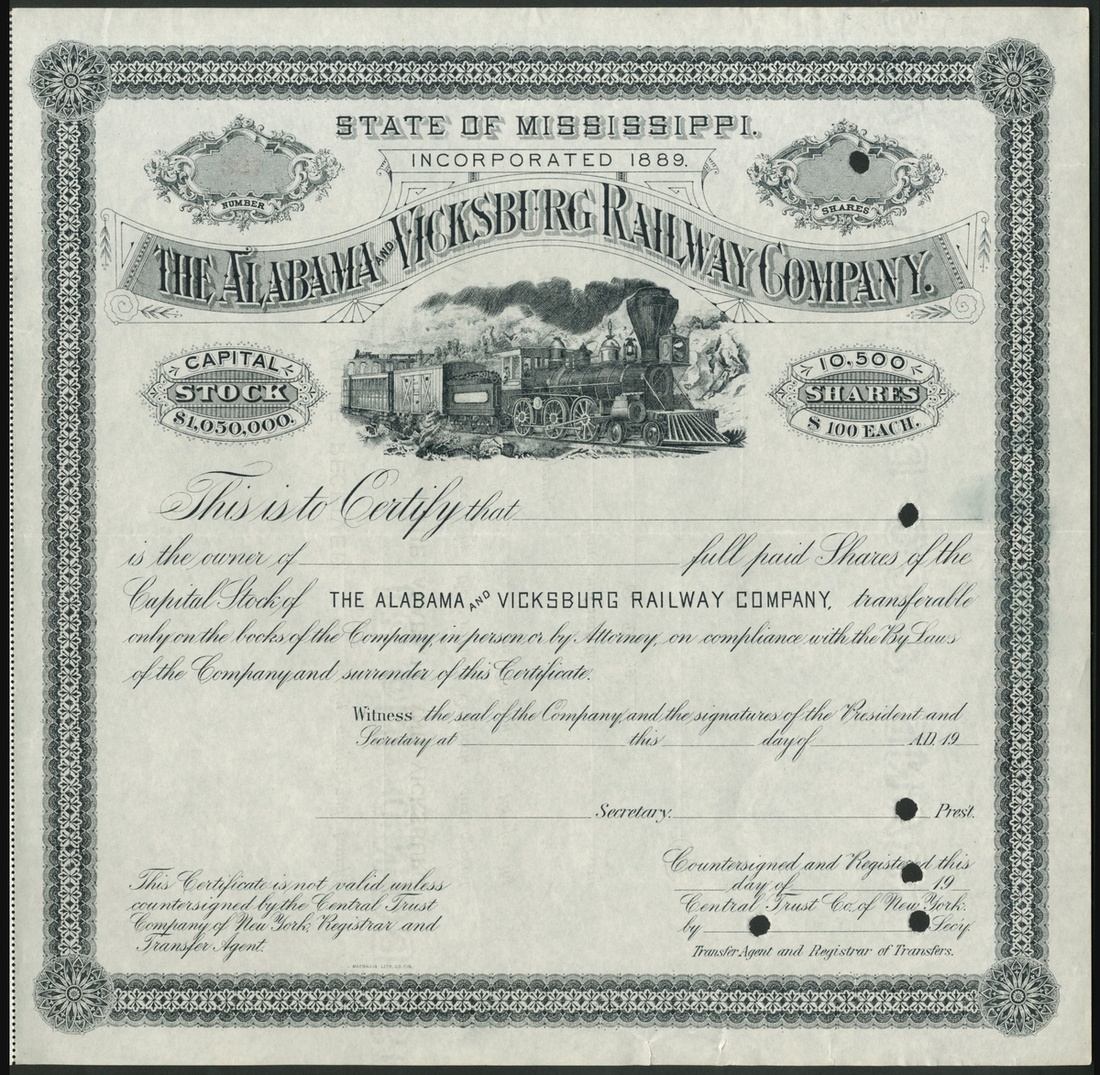 STATE OF MISSISSIPPI.
INCORPORATED 1889.
NUMBER
SHARES
THE ALABAMA AND VICKSBURG RAILWAY COMPANY.
CAPITAL
STOCK
$1,050,000.
10,500
SHARES
$100 EACH.
This is to Certify that
is the owner of full paid Shares of the
Capital Stock of THE ALABAMA AND VICKSBURG RAILWAY COMPANY, transferable
only on the books of the Company, in person or by Attorney, on compliance with the By Laws
of the Company and surrender of this Certificate.
Witness the seal of the Company, and the signatures of the President and
Secretary at this day of A.D. 19
Secretary. Prest.
This Certificate is not valid unless
countersigned by the Central Trust
Company of New York, Registrar and
Transfer Agent.
Countersigned and Registered this
day of 19
Central Trust Co. of New York.
by Secy.
Transfer Agent and Registrar of Transfers.